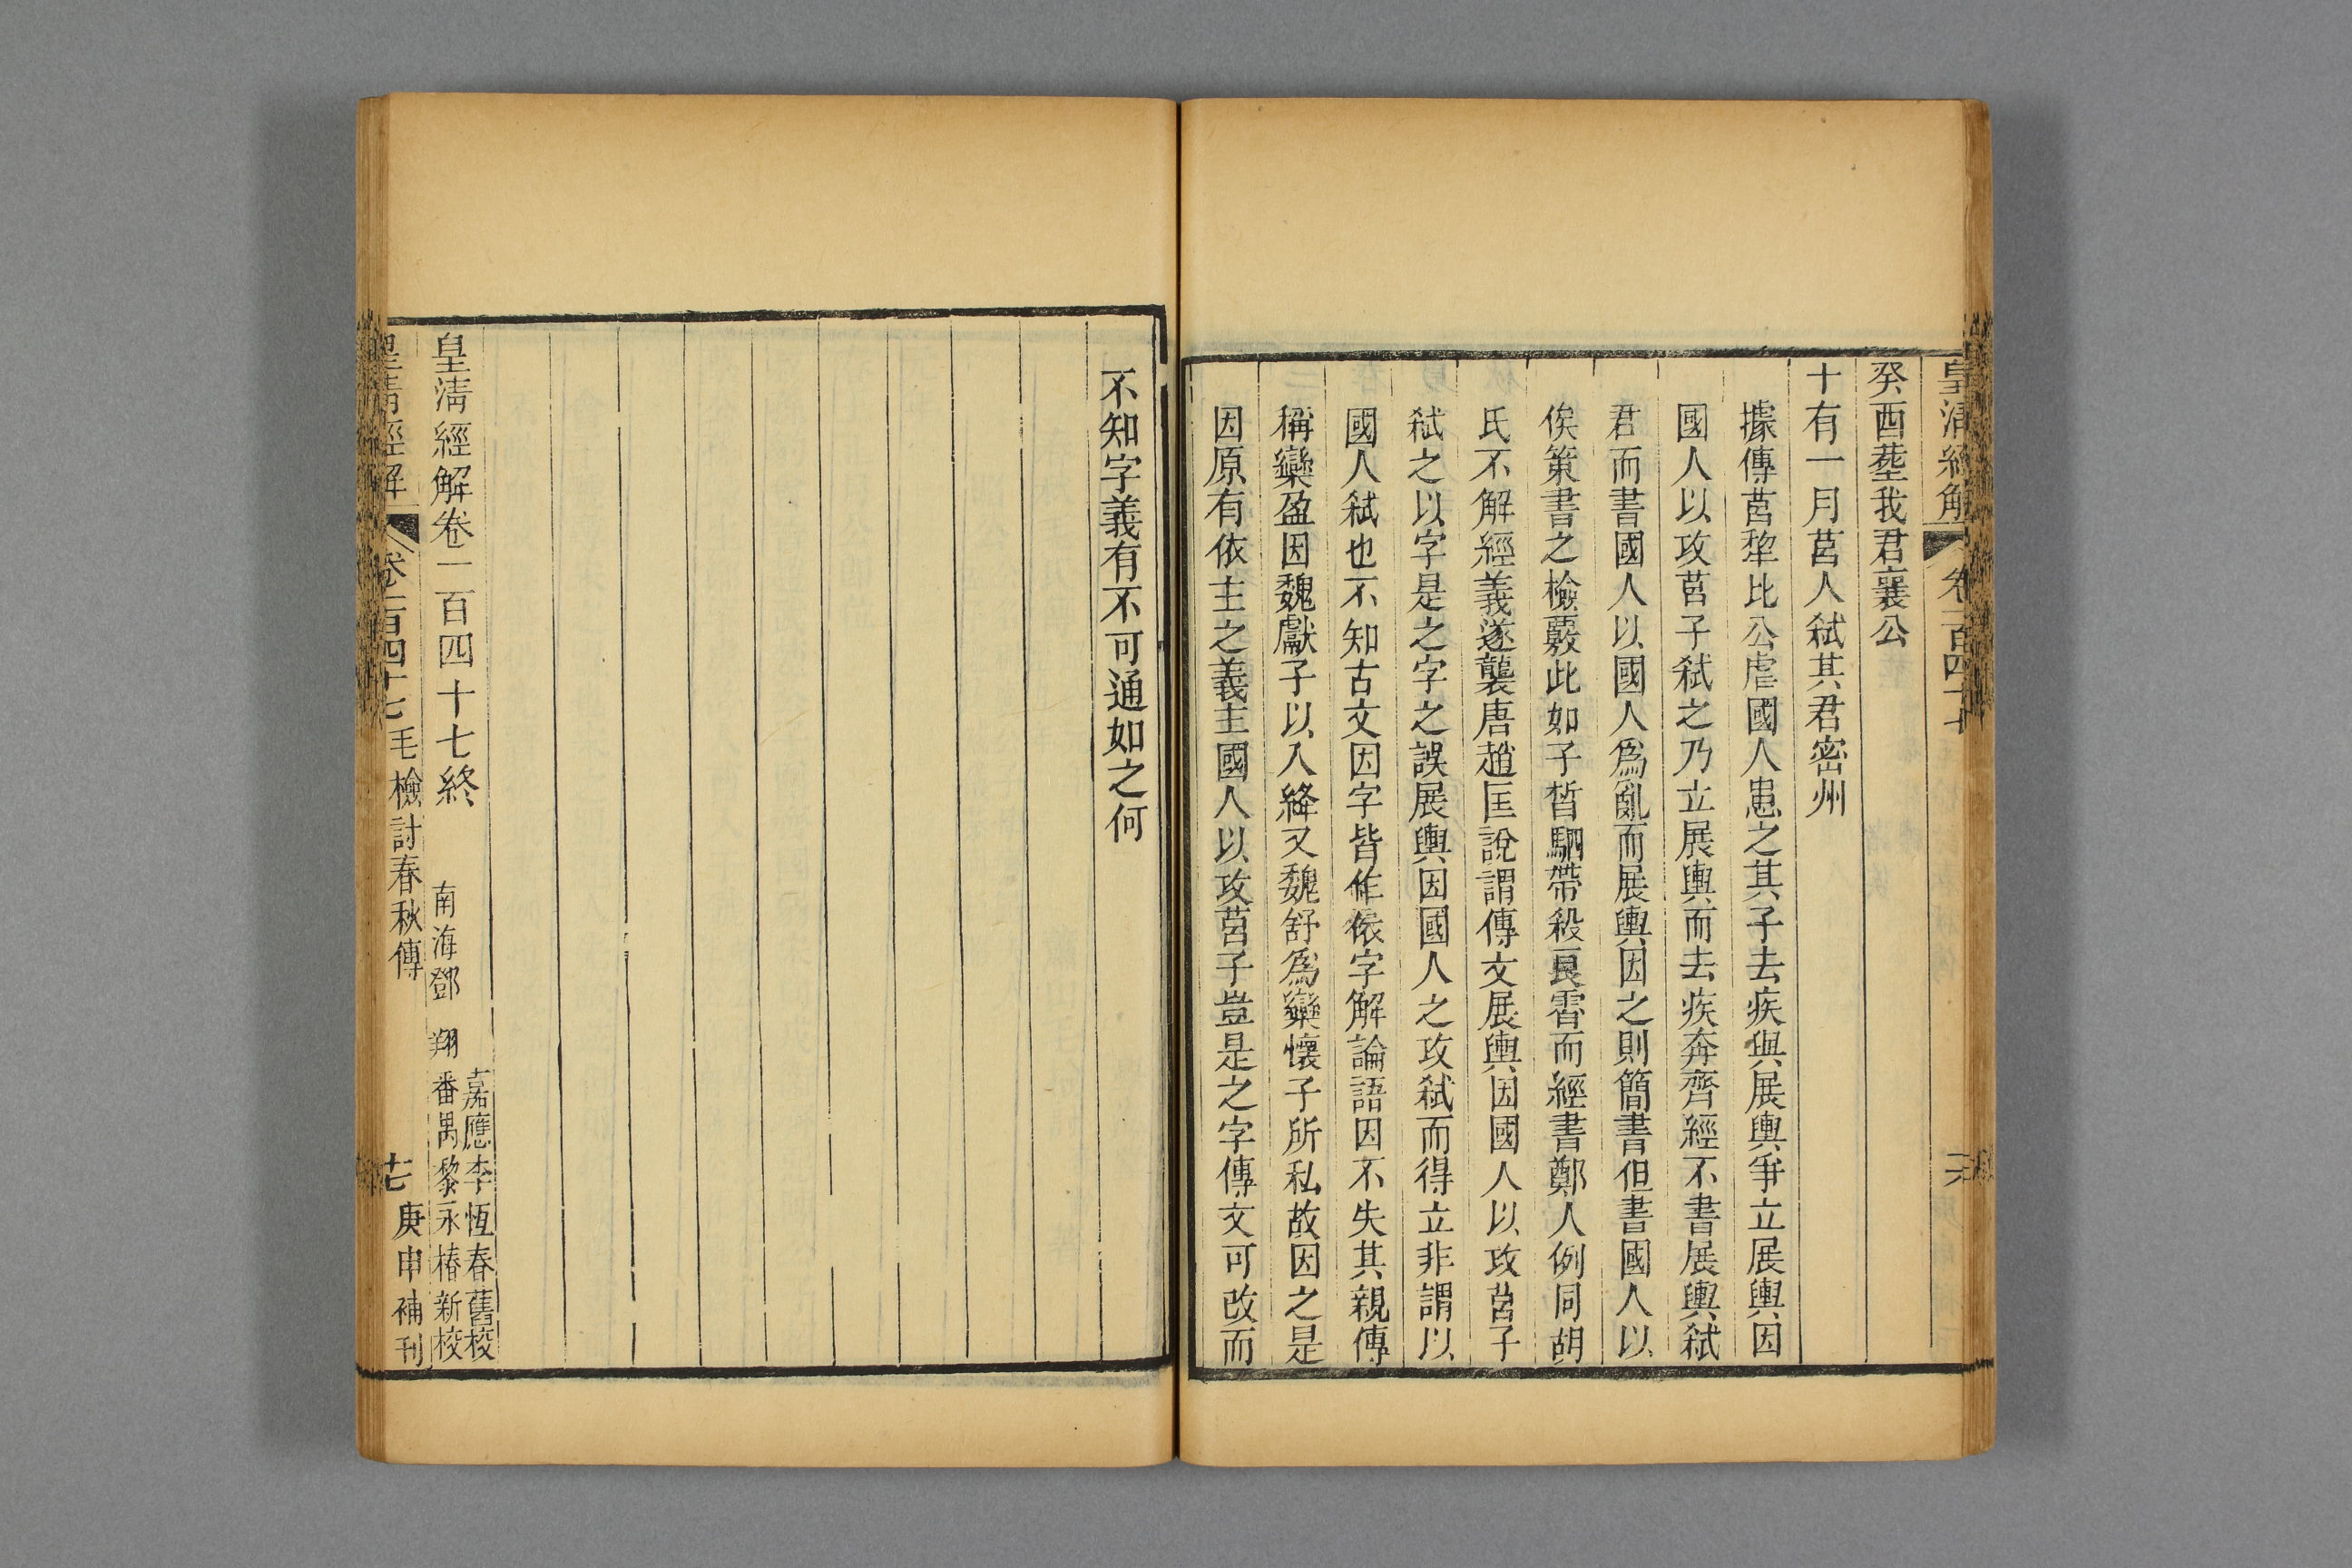 皇清經解 卷一百四十七
癸酉葬我君襄公
十有一月莒人弑其君密州
據傳莒犂比公虐國人患之其子去疾與展輿爭立展輿因
國人以攻莒子弑之乃立展輿而去疾奔齊經不書展輿弑
君而書國人以國人爲亂而展輿因之則簡書但書國人以
俟策書之檢覈此如子晳駟帶殺良霄而經書鄭人例同胡
氏不解經義遂襲唐趙匡說謂傳文展輿因國人以攻莒子
弑之以字是之字之誤展輿因國人之攻弑而得立非謂以
國人弑也不知古文因字皆作依字解論語因不失其親傳
稱欒盈因魏獻子以入絳又魏舒爲欒懷子所私故因之是
因原有依主之義主國人以攻莒子豈是之字傳文可改而
不知字義有不可通如之何
皇清經解卷一百四十七終
嘉應李恆春舊校
南海鄧翔
番禺黎永椿新校
皇清經解 卷一百四十七 毛檢討春秋傳 十七 庚申補刊